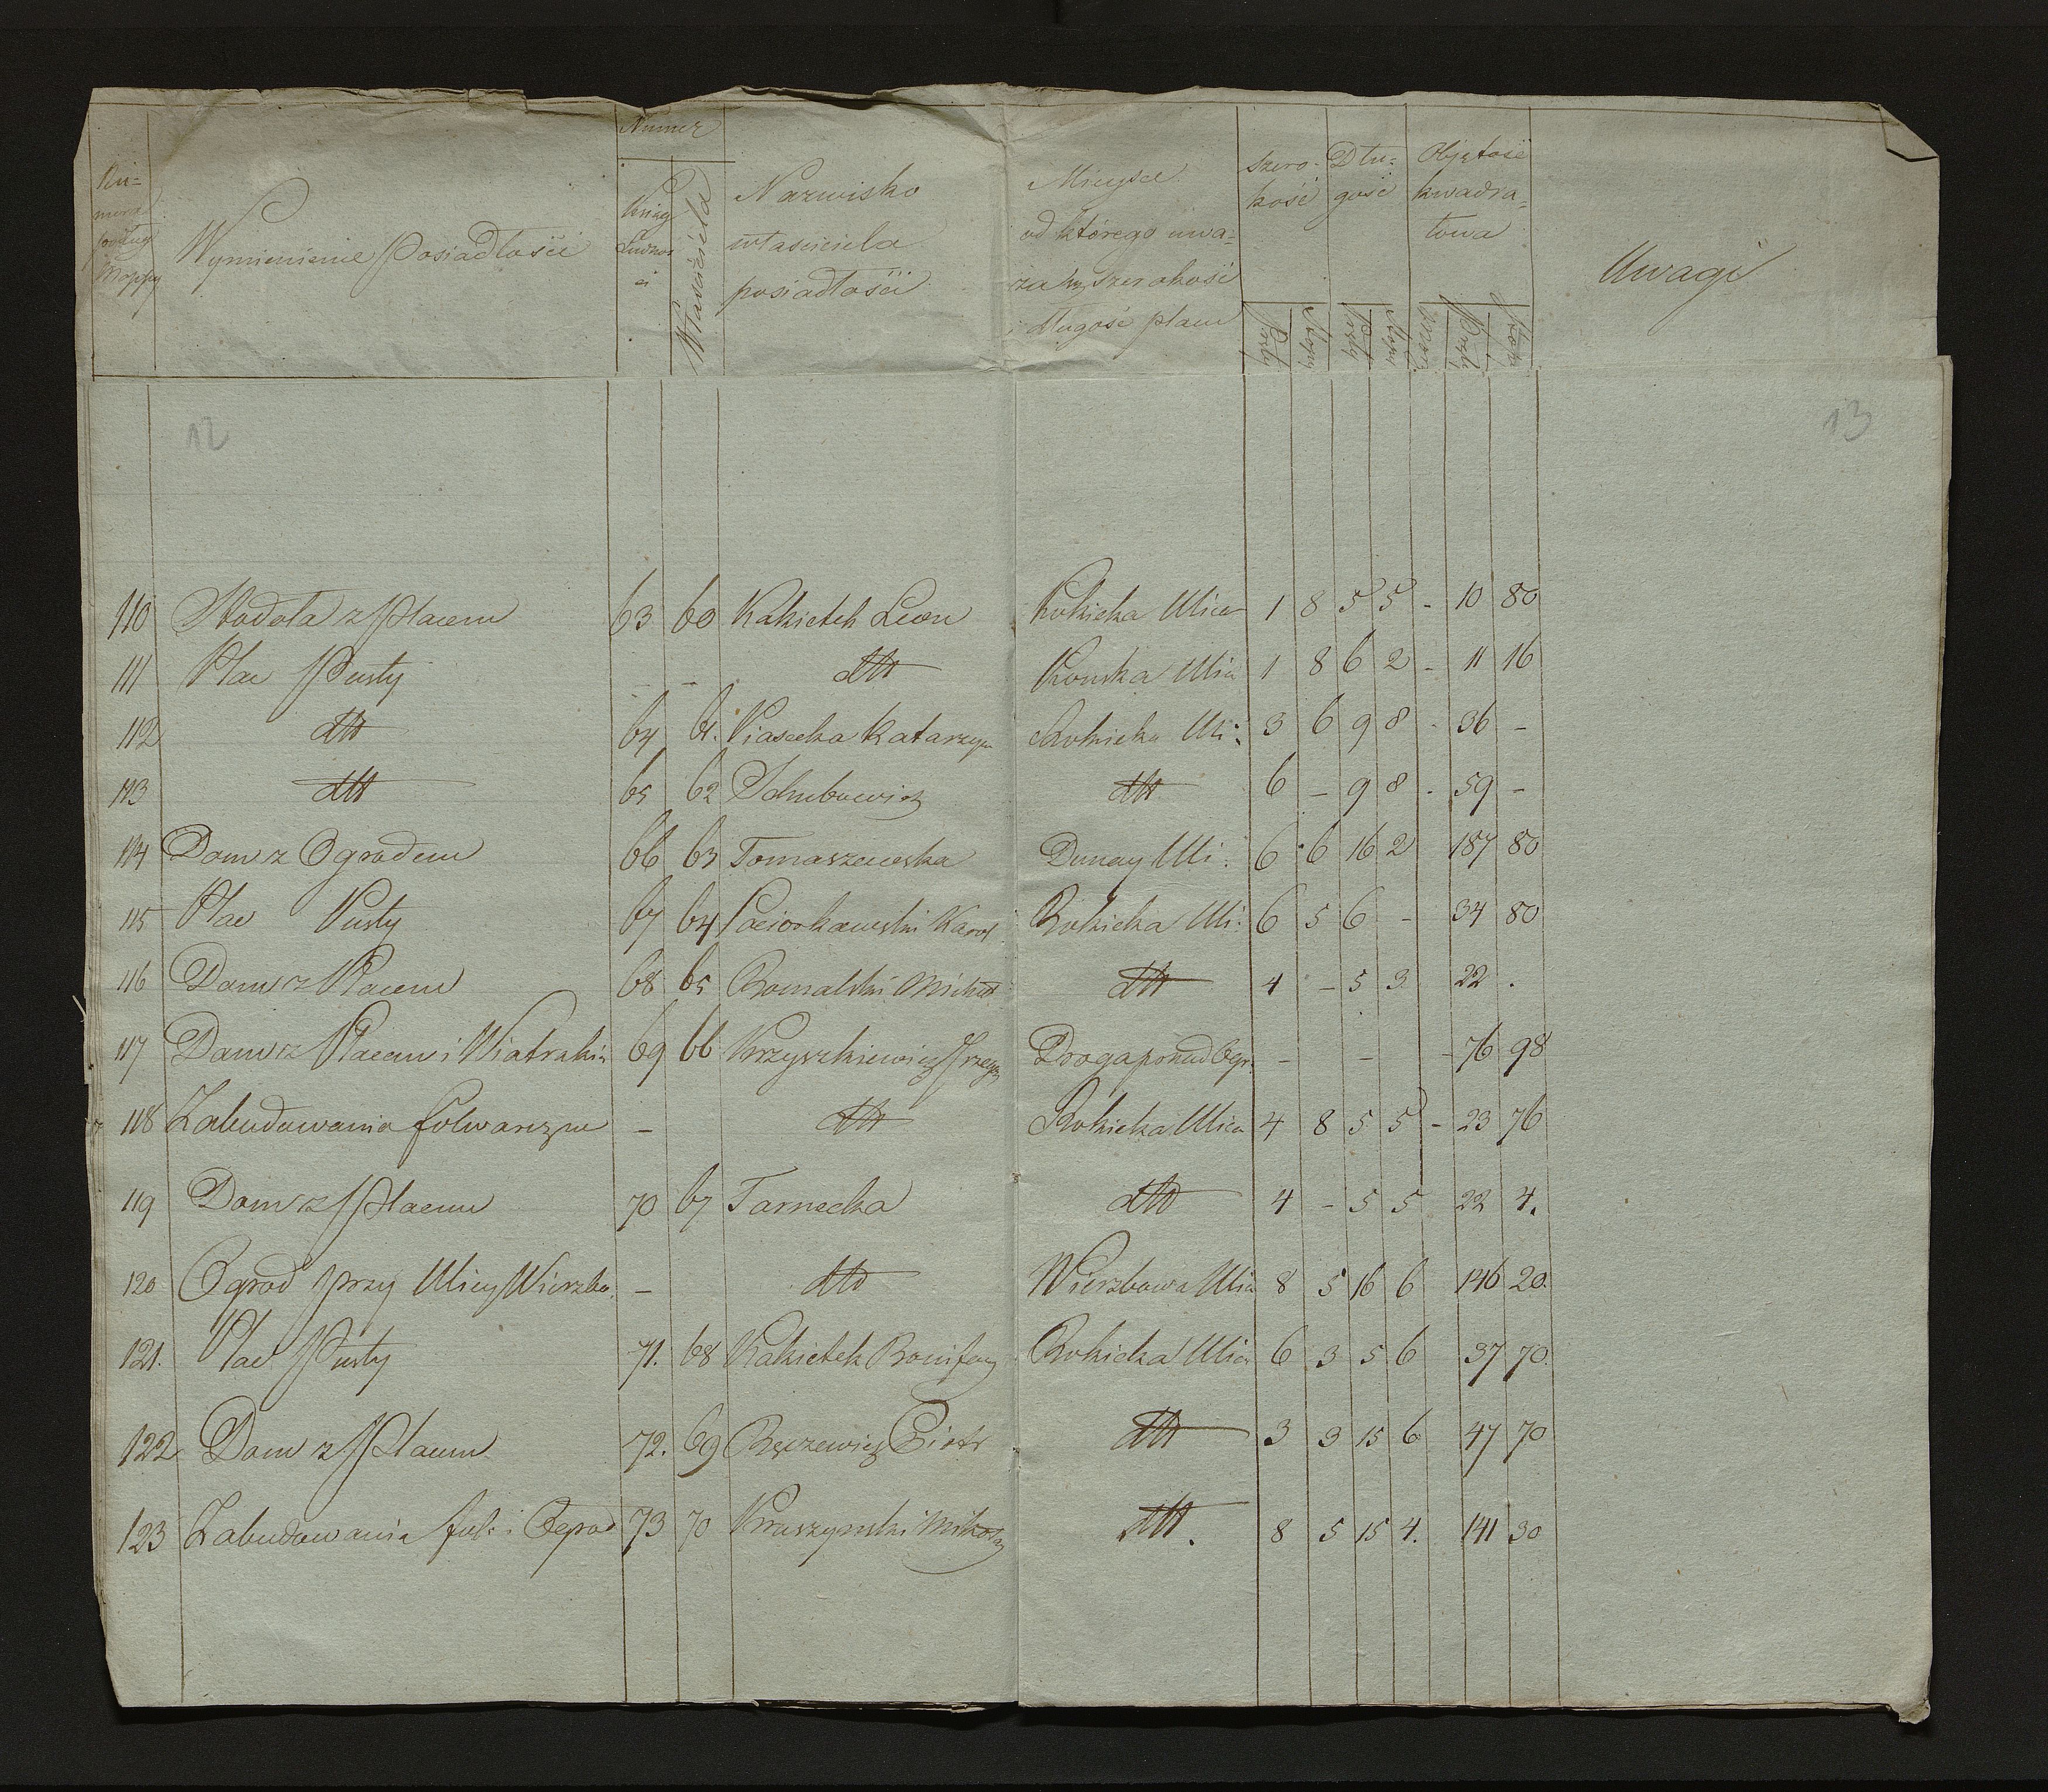 Nu=
mera
podług
Mappy
Wymienienie Posiadłości
Numer
Księgi
Ludnos
ci
Właściciela
Nazwisko
właściciela
posiadłości
Mieysce
od którego uwa=
za się szerokość
i długość placu
Szero-
kość
Dłu=
gość
Objętość
kwadra=
towa
Pręty
Stopy
Pręty
Stopy
Morgi
Pręty
Stopy
Uwagi
12
13
110 Stodoła z Placem 63 60 Kakietek Leon Rokicka Ulica 1 8 5 5 - 10 80
111 Plac Pusty - - dtto Konska Ulica 1 8 6 2 - 11 16
112 dtto 64 61. Piasecka Katarzyn Rokicka Uli: 3 6 9 8 - 36 -
113 dtto 65 62 dtto 6 - 9 8 - 59 -
114 Dom z Ogrodem 66 63 Tomaszewska Dunay Uli: 6 6 16 2 187 80
115 Plac Pusty 67 64 Karol Rokicka Uli: 6 5 6 - 34 80
116 Dom z Placem 68 65 Michał dtto 4 - 5 3 22 .
117 Dom z Placem i Wiatrakie 69 66 Krzyszkiewicz Droga ponad Ogr. - - - 76 98
118 Zabudowania folwarczne - dtto Rokicka Ulica 4 8 5 5 - 23 76
119 Dom z Placem 70 67 Tarnecka dtto 4 - 5 5 22 4.
120 Ogrod przy Ulicy Wierzbo. - dtto Wierzbowa Ulica 8 5 16 6 146 20.
121. Plac Pusty 71. 68 Kakietek Bonifacy Rokicka Ulica 6 3 5 6 37 70.
122 Dom z Placem. 72. 69 Piotr dtto 3 3 15 6 47 70
123 Zabudowania fol: i Ogrod 73 70 Kruszynski Mikołay dtto. 8 5 15 4. 141 30